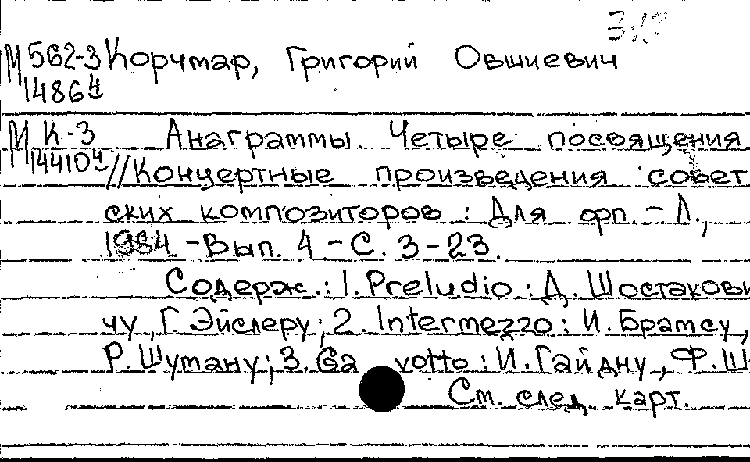 М 562-3 Корчмар, Григорий Овшиевич
14864
М К-3 Анаграммы. Четыре посвящения
144104 //Концертные произведения совет
ских композиторов : Для фп. - Л.,
1984 - Вып. 4 - С. 3-23.
Содерж.: 1. Preludio : Д. Шостакови
чу, Г. Эйслеру; 2. Intermezzo : И. Брамсу,
Р. Шуману; 3. Ga votto : И. Гайдну, Ф. Ш
См. след. карт.